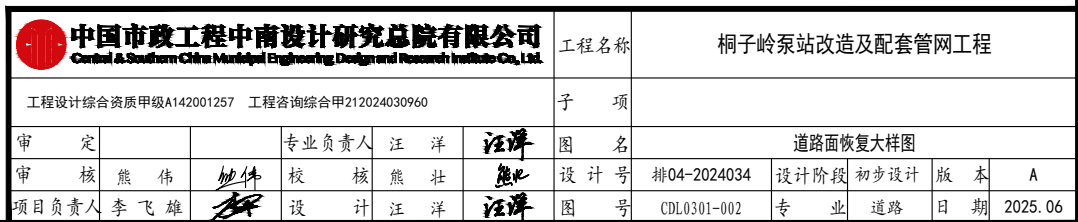 中国市政工程中南设计研究总院有限公司
Central & Southern China Municipal Engineering Design and Research Institute Co., Ltd.
工程名称 桐子岭泵站改造及配套管网工程
工程设计综合资质甲级A142001257 工程咨询综合甲212024030960
子 项
审 定 专业负责人 汪 洋 汪洋 图 名 道路面恢复大样图
审 核 熊 伟 校 核 熊 壮 设 计 号 排04-2024034 设计阶段 初步设计 版 本 A
项目负责人 李 飞 雄 设 计 汪 洋 汪洋 图 号 CDL0301-002 专 业 道路 日 期 2025.06